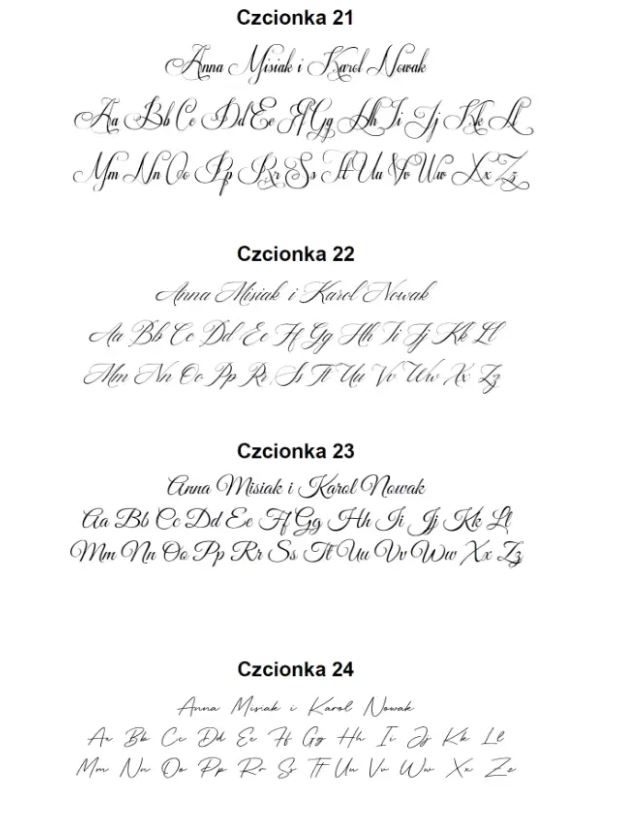 Czcionka 21
Anna Misiak i Karol Nowak
Aa Bb Cc Dd Ee Ff Gg Hh Ii Jj Kk Ll
Mm Nn Oo Pp Rr Ss Tt Uu Vv Ww Xx Zz
Czcionka 22
Anna Misiak i Karol Nowak
Aa Bb Cc Dd Ee Ff Gg Hh Ii Jj Kk Ll
Mm Nn Oo Pp Rr Ss Tt Uu Vv Ww Xx Zz
Czcionka 23
Anna Misiak i Karol Nowak
Aa Bb Cc Dd Ee Ff Gg Hh Ii Jj Kk Ll
Mm Nn Oo Pp Rr Ss Tt Uu Vv Ww Xx Zz
Czcionka 24
Anna Misiak i Karol Nowak
Aa Bb Cc Dd Ee Ff Gg Hh Ii Jj Kk Ll
Mm Nn Oo Pp Rr Ss Tt Uu Vv Ww Xx Zz